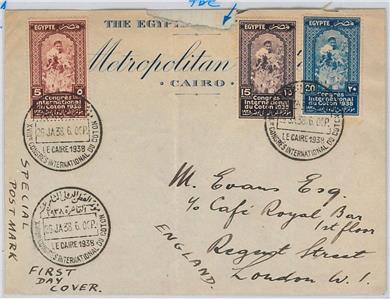 THE EGYPT
Metropolitan
CAIRO
EGYPTE
5 ٥
Congrès
International
du Coton 1938
EGYPTE
15 ١٥
Congrès
International
du Coton 1938
EGYPTE
20 ٢٠
Congrès
International
du Coton 1938
26 JA 38. 6.
XVIIIe CONGRES INTERNATIONAL DU COTON
LE CAIRE 1938
26 JA 38. 6.
CONGRES INTERNATIONAL DU COTON
LE CAIRE 1938
26 JA 38. 6.
CONGRES INTERNATIONAL DU COTON
LE CAIRE 1938
SPECIAL
POST MARK
FIRST
DAY
COVER.
M. Evans Esq.
c/o Café Royal Bar
1st floor
Regent Street
London W.1.
ENGLAND.